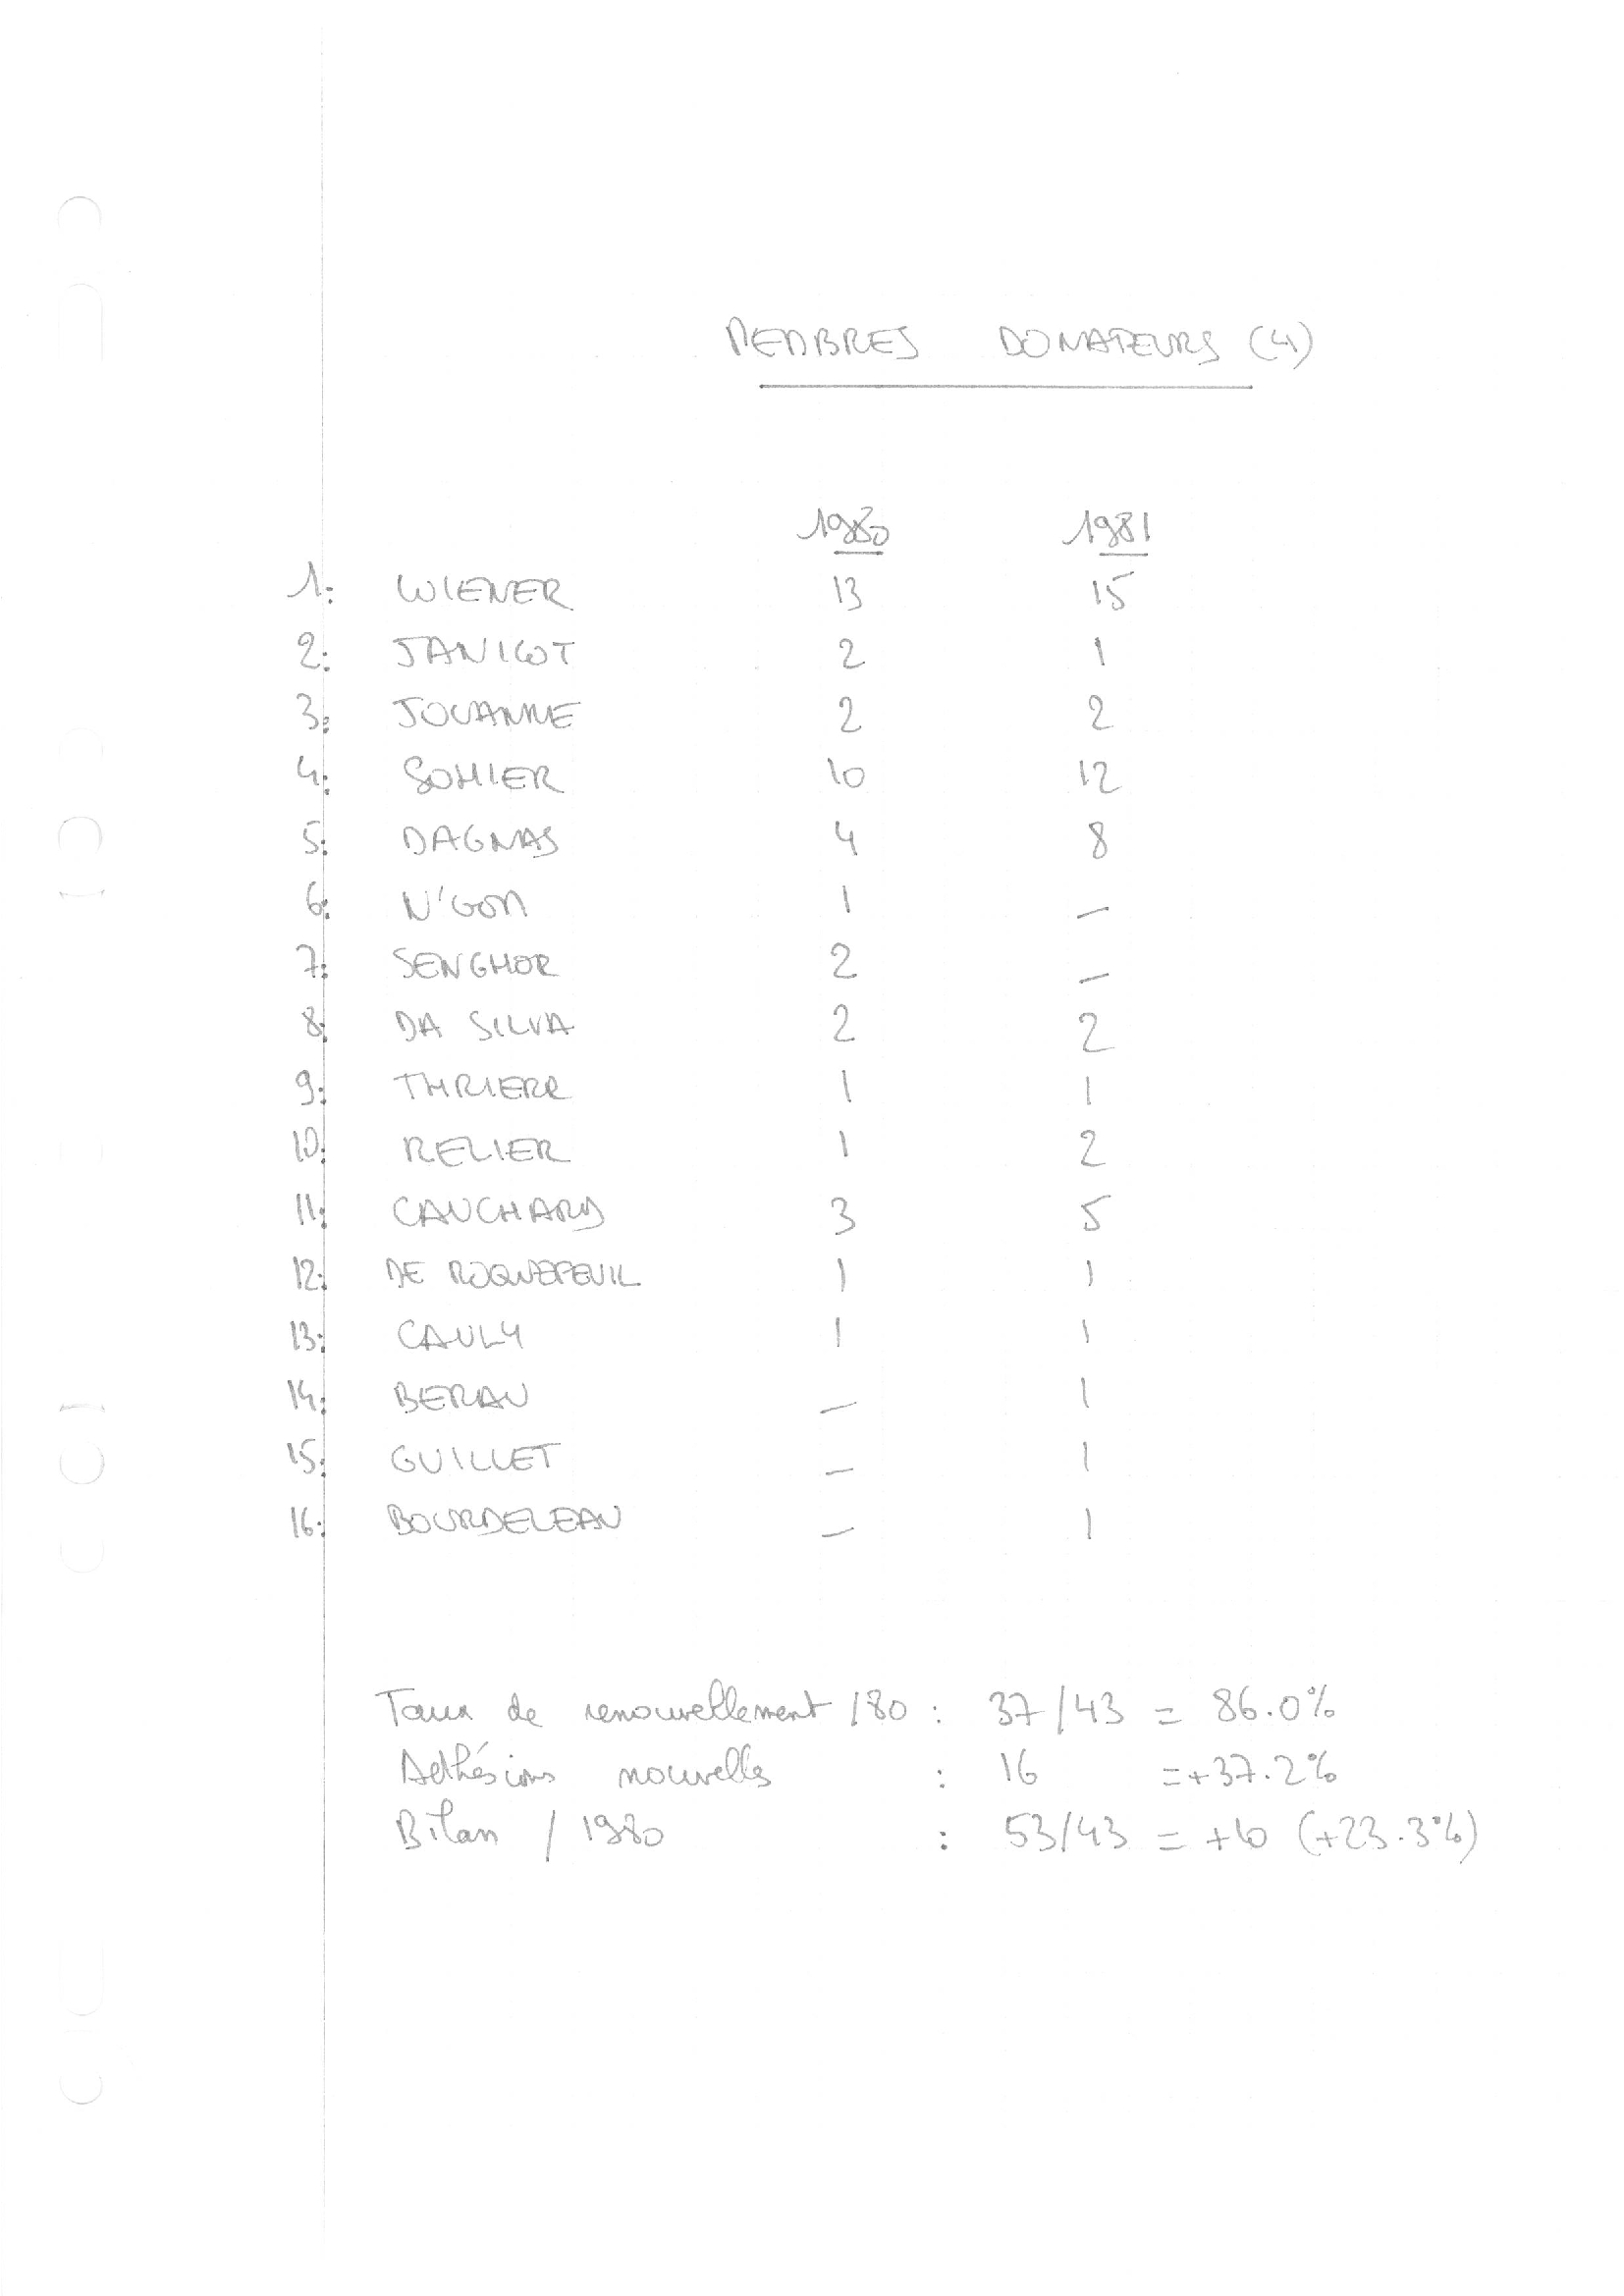 MEMBRES DONATEURS (4)
1980 1981
1: WIENER 13 15
2: JANICOT 2 1
3: JOUANNE 2 2
4: SOHIER 10 12
5: DAGNAS 4 8
6: N'GOM 1 —
7: SENGHOR 2 —
8: DA SILVA 2 2
9: THRIERR 1 1
10: RELIER 1 2
11: CAUCHARD 3 5
12: DE ROQUEFEUIL 1 1
13: CAULY 1 1
14: BERAU — 1
15: GUILLET — 1
16: BOURDELEAU — 1
Taux de renouvellement /80 : 37/43 = 86.0%
Adhésions nouvelles : 16 =+37.2%
Bilan / 1980 : 53/43 = +10 (+23.3%)